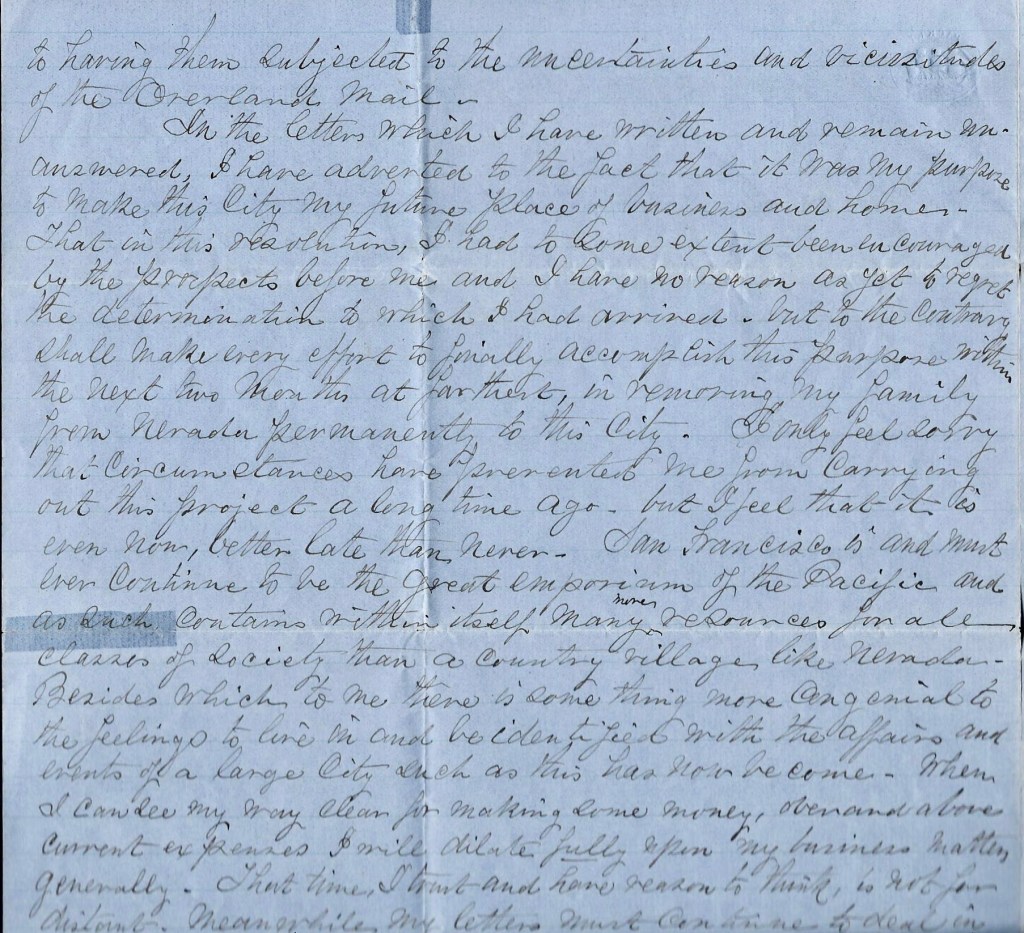 to having them subjected to the uncertainties and vicissitudes
of the Overland Mail -
In the letters which I have written and remain un-
answered, I have adverted to the fact that it was my purpose
to make this City my future place of business and home -
That in this resolution, I had to some extent been encouraged
by the prospects before me and I have no reason as yet to regret
the determination to which I had arrived - but to the contrary
shall make every effort to finally accomplish this purpose within
the next two months at farthest, in removing my family
from Nevada permanently to this City - I only feel sorry
that circumstances have prevented me from carrying
out this project a long time ago - but I feel that it is
even now, better late than never - San Francisco is and must
ever continue to be the great emporium of the Pacific and
as such contains within itself many more resources for all
classes of society than a country village like Nevada -
Besides which to me there is some thing more congenial to
the feelings to live in and be identified with the affairs and
events of a large City such as this has now become - When
I can see my way clear for making some money, over and above
current expenses I will dilate fully upon my business matters
generally - That time, I trust and have reason to think, is not far
distant. Meanwhile my letters must continue to deal in